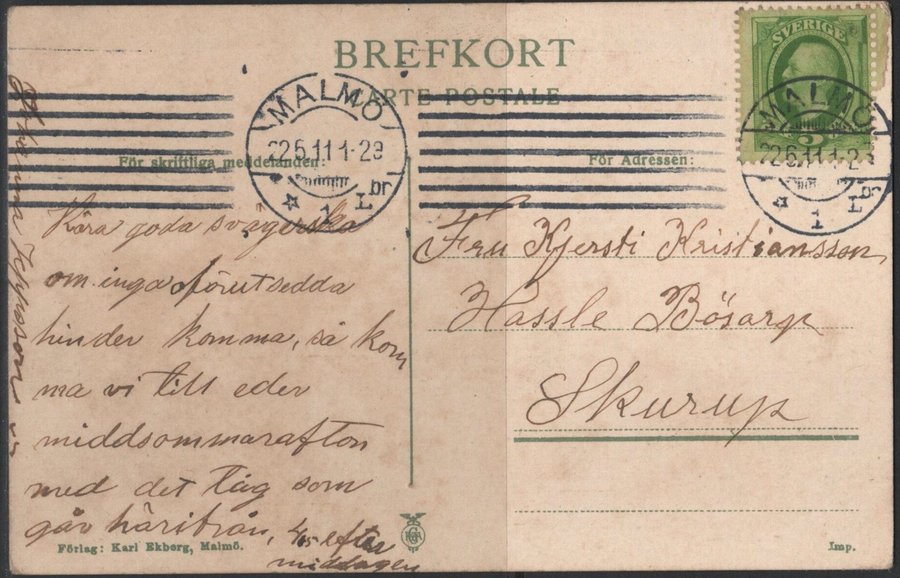 BREFKORT
CARTE POSTALE
SVERIGE
5
MALMÖ
22 6 11 1-2 e
1 L br
MALMÖ
22 6 11 1-2 e
1 L br
För skriftliga meddelanden:
För Adressen:
Kära goda svägerska
om inga förutsedda
hinder komma, så kom
ma vi till eder
middsommarafton
med det tåg som
går härifrån, 4,15 efter
middagen
Jeppsson
Fru Kjersti Kristiansson
Hassle Bösarp
Skurup
Förlag: Karl Ekberg, Malmö.
Imp.